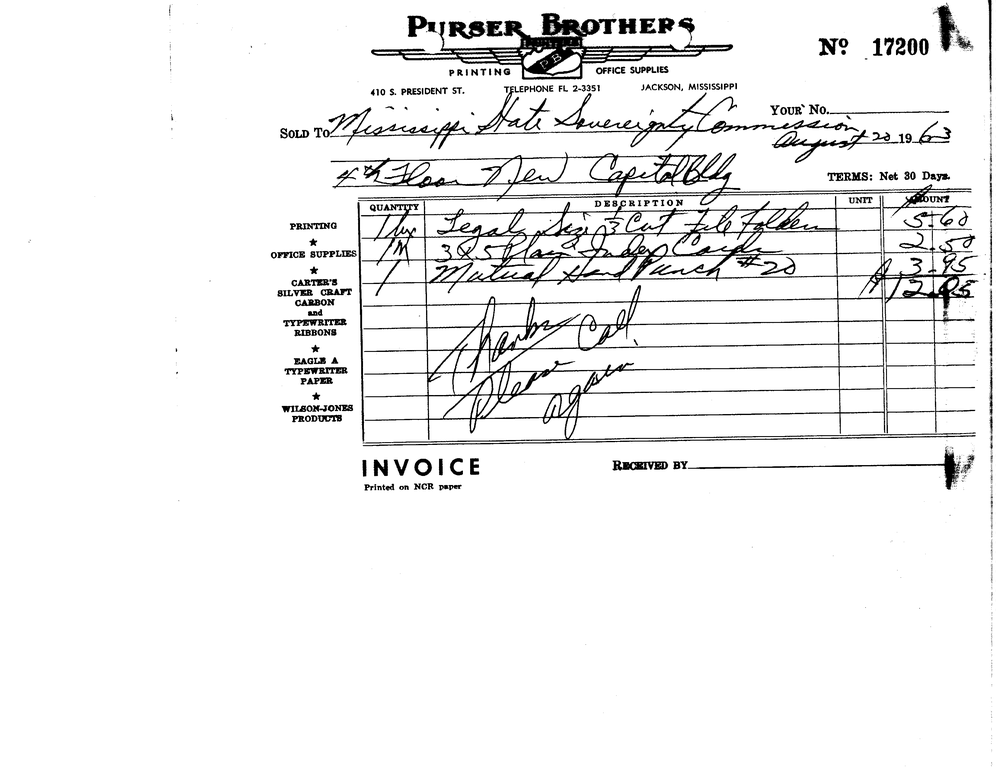 PURSER BROTHERS
PRINTERS
P B
PRINTING OFFICE SUPPLIES
Nº 17200
410 S. PRESIDENT ST. TELEPHONE FL 2-3351 JACKSON, MISSISSIPPI
YOUR No.
SOLD TO Mississippi State Sovereignty Commission
August 20 1963
4th Floor New Capitol Bldg
TERMS: Net 30 Days.
QUANTITY DESCRIPTION UNIT AMOUNT
1 bx Legal Size 1/3 Cut File Folder 5.60
1M 3 X 5 Plain Index Cards 2.50
1 Mutual Hand Punch #20 3.95
12.05
Thanks
Please Call
again
PRINTING
★
OFFICE SUPPLIES
★
CARTER'S
SILVER CRAFT
CARBON
and
TYPEWRITER
RIBBONS
★
EAGLE A
TYPEWRITER
PAPER
★
WILSON-JONES
PRODUCTS
INVOICE
Printed on NCR paper
RECEIVED BY